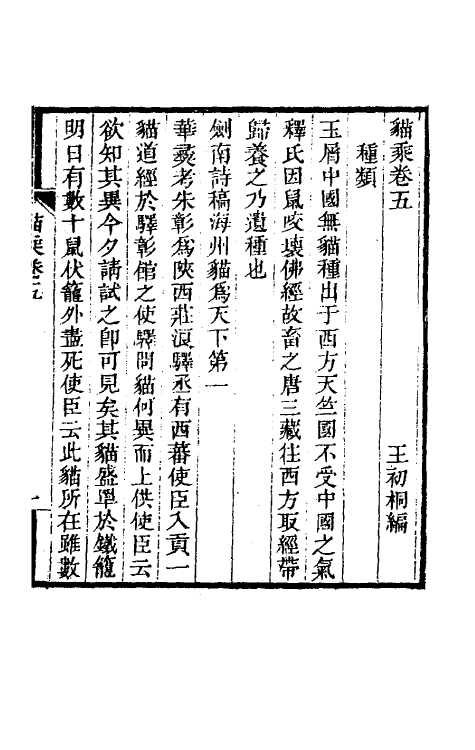 貓乘卷五
王初桐編
種類
玉屑中國無貓種出于西方天竺國不受中國之氣
釋氏因鼠咬壞佛經故畜之唐三藏往西方取經帶
歸養之乃遺種也
劍南詩稿海州貓爲天下第一
華彛考朱彰爲陝西莊浪驛丞有西蕃使臣入貢一
貓道經於驛彰館之使驛問貓何異而上供使臣云
欲知其異今夕請試之卽可見矣其貓盛罩於鐵籠
明日有數十鼠伏籠外盡死使臣云此貓所在雖數
貓乘卷五
一